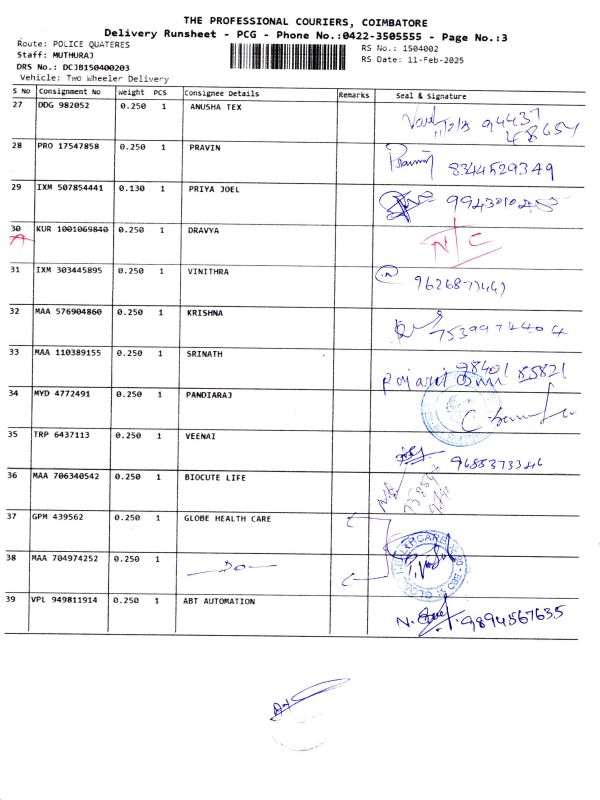 THE PROFESSIONAL COURIERS, COIMBATORE
Delivery Runsheet - PCG - Phone No.:0422-3505555 - Page No.:3
Route: POLICE QUATERES
Staff: MUTHURAJ
DRS No.: DCJB150400203
Vehicle: Two Wheeler Delivery
RS No.: 1504002
RS Date: 11-Feb-2025
S No Consignment No Weight PCS Consignee Details Remarks Seal & Signature
27 DDG 982052 0.250 1 ANUSHA TEX
28 PRO 17547858 0.250 1 PRAVIN Pravin 8344529349
29 IXM 507854441 0.130 1 PRIYA JOEL
30 KUR 1001069840 0.250 1 DRAVYA N/C
31 IXM 303445895 0.250 1 VINITHRA
32 MAA 576904860 0.250 1 KRISHNA 7539974404
33 MAA 110389155 0.250 1 SRINATH 98401 85821
34 MYD 4772491 0.250 1 PANDIARAJ
35 TRP 6437113 0.250 1 VEENAI 9688373346
36 MAA 706340542 0.250 1 BIOCUTE LIFE
37 GPM 439562 0.250 1 GLOBE HEALTH CARE
38 MAA 704974252 0.250 1 —Do—
39 VPL 949811914 0.250 1 ABT AUTOMATION 9894567635